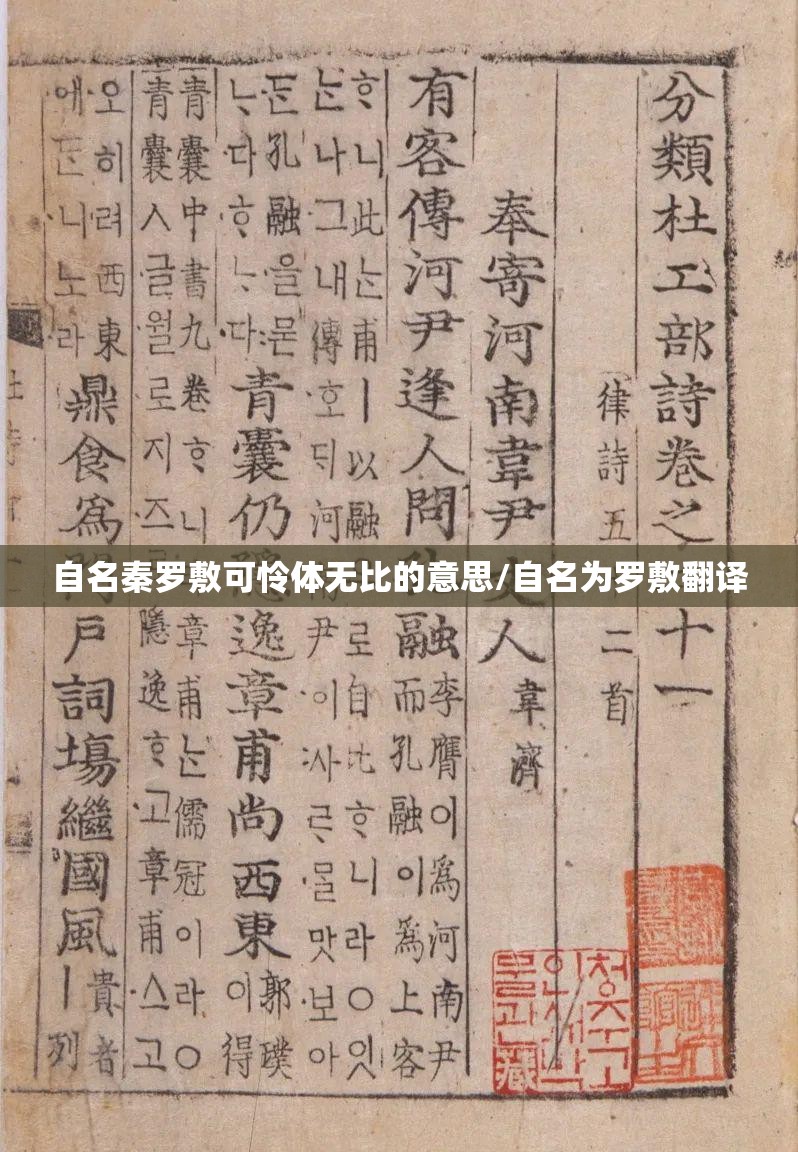 分類杜工部詩卷之 十一
律詩五 二首
奉寄河南韋尹 人 韋濟
有客傳河尹逢人問 融
李膺이爲河南尹
而孔融이爲上客
ᄒᆞ니此ᄂᆞᆫ甫ㅣ以融 로自比ᄒᆞ니라○잇
ᄂᆞᆫ나그내傳호ᄃᆡ河 尹이사ᄅᆞᄆᆞᆯ맛보아
ᄃᆞᆫ孔融을묻
ᄂᆞ다ᄒᆞᄂᆞ다
青囊仍 逸章甫尚西東
郭璞
이得
青囊中書九卷ᄒᆞ니 章甫ᄂᆞᆫ儒冠이라○
青囊人글월로지즈 隱逸ᄒᆞ고章甫스고
오히려西東
에ᄃᆞᆫ니노라
鼎食爲 戶詞塲繼國風
貴者
ㅣ列
自名秦罗敷可怜体无比的意思/自名为罗敷翻译